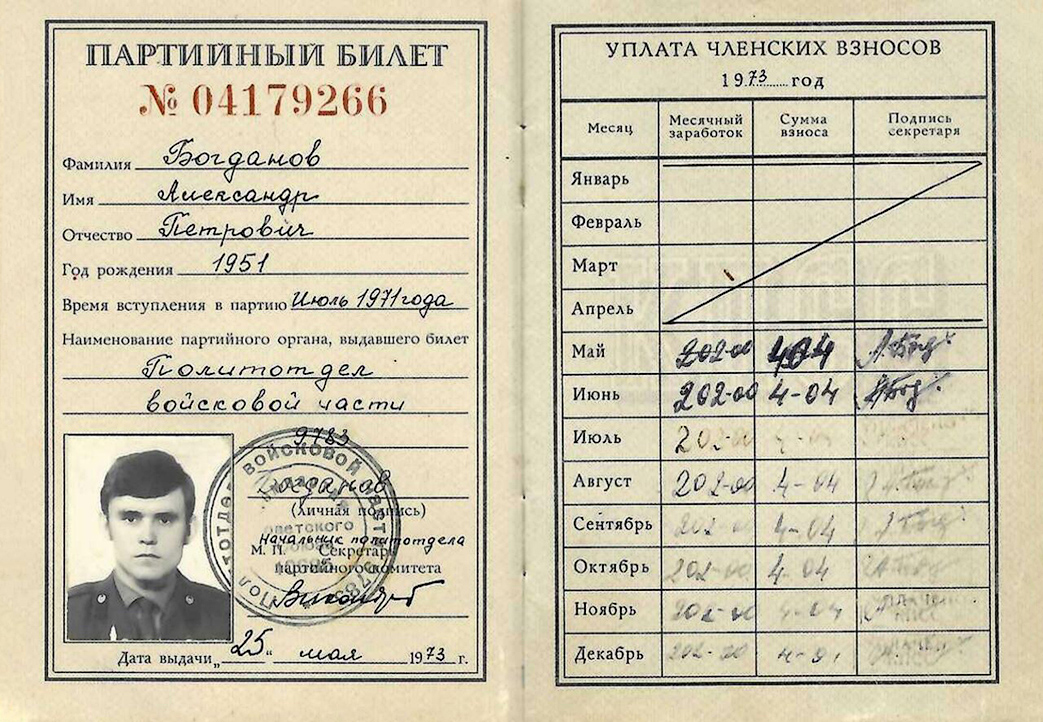 ПАРТИЙНЫЙ БИЛЕТ
№ 04179266
Фамилия Богданов
Имя Александр
Отчество Петрович
Год рождения 1951
Время вступления в партию Июль 1971 года
Наименование партийного органа, выдавшего билет
Политотдел
войсковой части
9783
Богданов
(личная подпись)
начальник политотдела
М. П. Секретарь
партийного комитета
Дата выдачи „25“ мая 1973 г.
УПЛАТА ЧЛЕНСКИХ ВЗНОСОВ
1973 год
Месяц Месячный заработок Сумма взноса Подпись секретаря
Январь
Февраль
Март
Апрель
Май 202-00 4-04
Июнь 202-00 4-04
Июль 202-00 4-04
Август 202-00 4-04
Сентябрь 202-00 4-04
Октябрь 202-00 4-04
Ноябрь 202-00 4-04
Декабрь 202-00